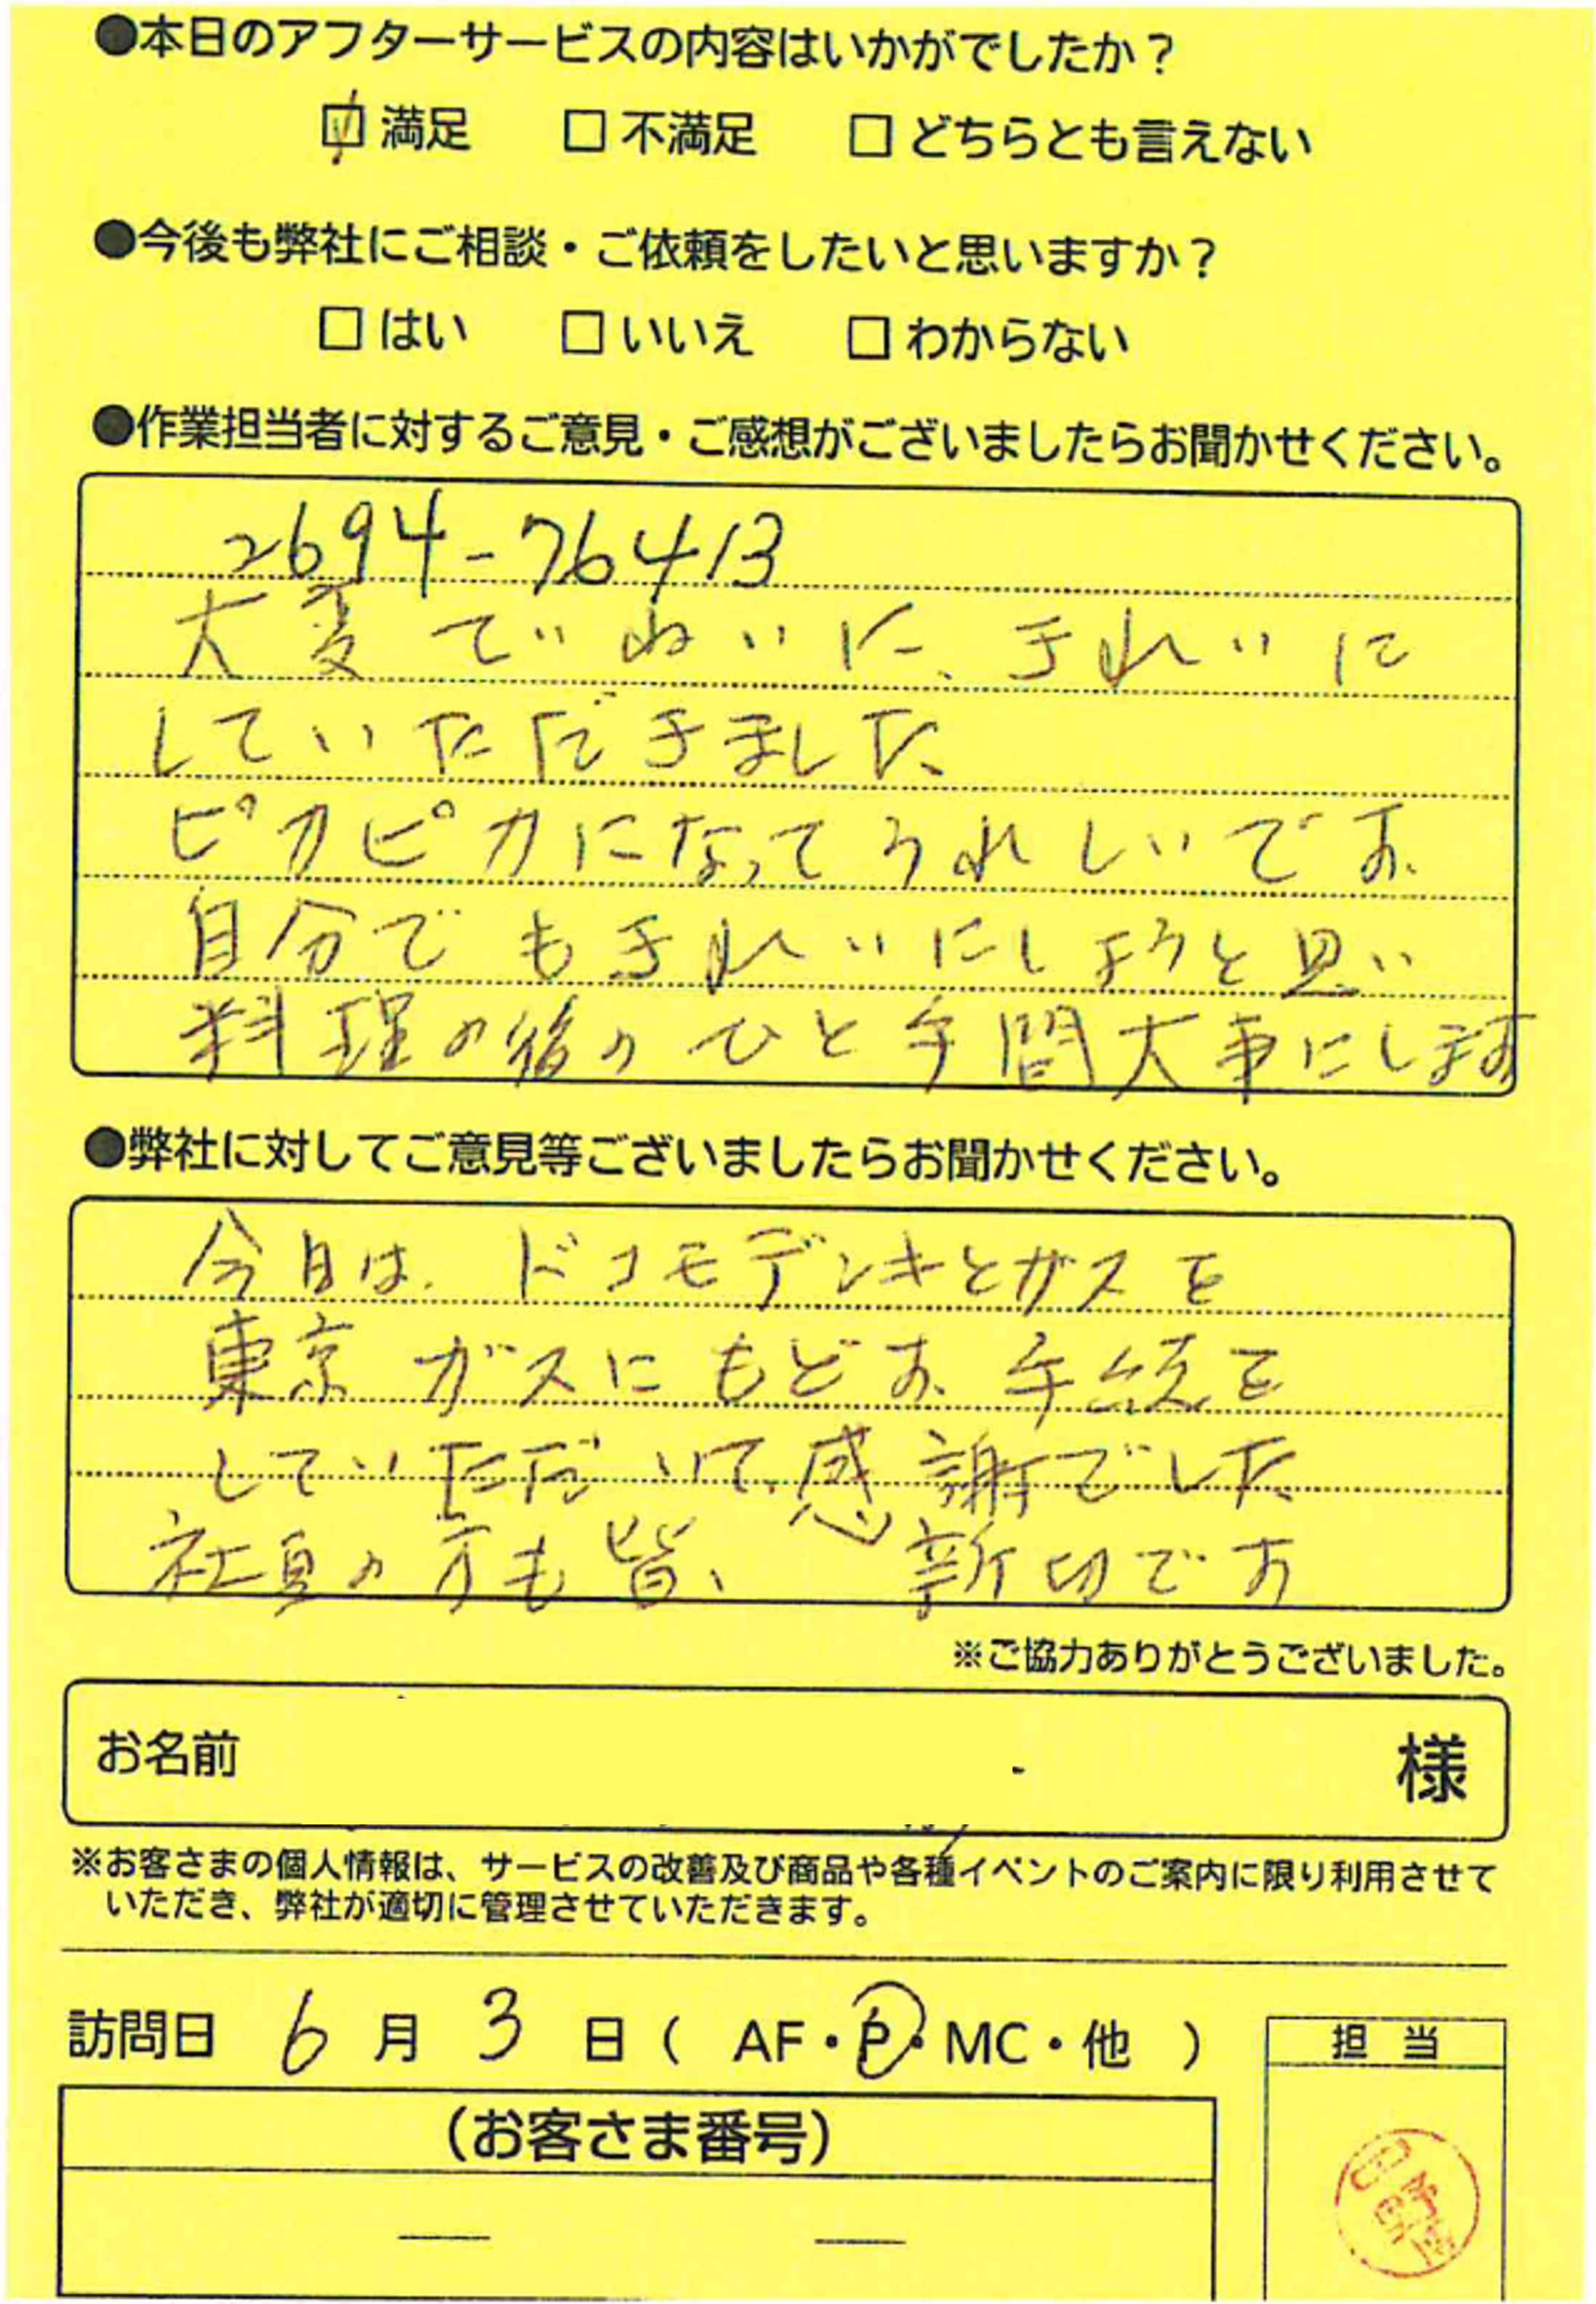 ●本日のアフターサービスの内容はいかがでしたか？
☑満足 □不満足 □どちらとも言えない
●今後も弊社にご相談・ご依頼をしたいと思いますか？
□はい □いいえ □わからない
●作業担当者に対するご意見・ご感想がございましたらお聞かせください。
2694-76413
大変ていねいに、きれいに
していただきました
ピカピカになってうれしいです。
自分でもきれいにしようと思い
料理の後のひと手間大事にします
●弊社に対してご意見等ございましたらお聞かせください。
今日は、ドコモデンキとガスを
東京ガスにもどす手続を
していただいて感謝でした
社員の方も皆、親切です
※ご協力ありがとうございました。
お名前 様
※お客さまの個人情報は、サービスの改善及び商品や各種イベントのご案内に限り利用させて
いただき、弊社が適切に管理させていただきます。
訪問日 6月3日( AF・P・MC・他 )
担当
(お客さま番号)
— —